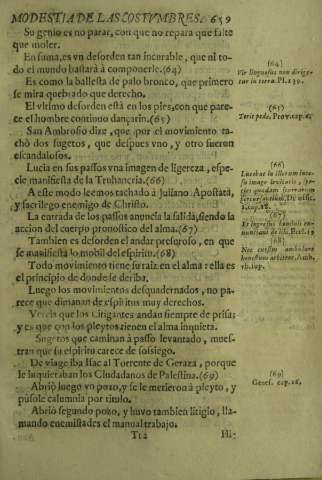 MODESTIA DE LAS COSTVMBRES. 659
Su genio es no parar, con que no repara que falte
que moler.
En suma, es vn desorden tan incurable, que ni to-
do el mundo bastarà à componerle. (64)
Es como la ballesta de palo bronco, que primero
se mira quebrado que derecho.
El vltimo desorden està en los pies, con que pare-
ce el hombre continuo dançarin. (65)
San Ambrosio dize, que por el movimiento ta-
chò dos sugetos, que despues vno, y otro fueron
escandalosos.
Lucia en sus passos vna imagen de ligereza, espe-
cie manifiesta de la Truhaneria. (66)
A este modo leemos tachado à Juliano Apostata,
y sacrilego enemigo de Christo.
La entrada de los passos anuncia la salida, siendo la
accion del cuerpo pronostico del alma. (67)
Tambien es desorden el andar presuroso, en que
se manifiesta lo mobil del espiritu. (68)
Todo movimiento tiene su raiz en el alma y ella es
el principio de donde se deriba.
Luego los movimientos desquadernados, no pa-
rece que dimanan de espiritus muy derechos.
Vereis que los Gigantes andan siempre de prisa;
y es que con los pleytos tienen el alma inquieta.
Sugetos que caminan à passo levantado, mues-
tran que su espiritu carece de sosiego.
De viage iba Isac al Torrente de Geraza, porque
le inquietaban los Ciudadanos de Palestina. (69)
Abriò luego vn pozo, y se le metieron à pleyto, y
pusole calumnia por titulo.
Abriò segundo pozo, y huvo tambien litigio, lla-
mando enemistades el manual trabajo.
Tt2 Hi-
(64)
Vir linguosus non dirige-
tur in terra. Ps. 139.
(65)
Terit pede. Prov. cap. 6.
(66)
(67)
(68)
(69)
Genes. cap. 26.